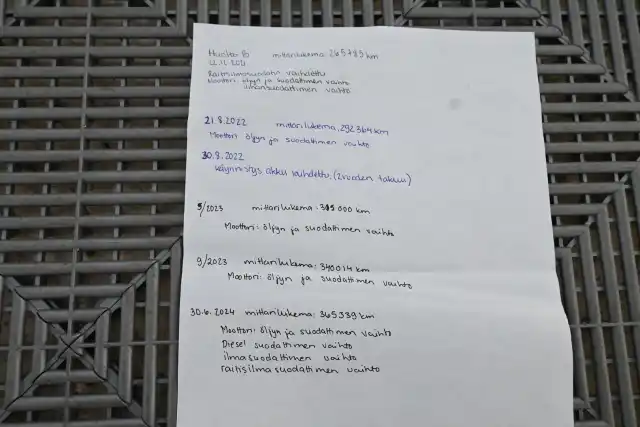 Huolto Po mittarilukema: 265789 km
12.11.2021
Raitisilmasuodatin vaihdettu
Moottori: öljyn ja suodattimen vaihto
ilmansuodattimen vaihto
21.8.2022 mittarilukema: 292364 km
Moottori: öljyn ja suodattimen vaihto
30.8.2022
käynnistys akku vaihdettu, (2 vuoden takuu)
5/2023 mittarilukema: 315000 km
Moottori: öljyn ja suodattimen vaihto
9/2023 mittarilukema: 340014 km
Moottori: öljyn ja suodattimen vaihto
30.6.2024 mittarilukema: 365339 km
Moottori: öljyn ja suodattimen vaihto
Diesel suodattimen vaihto
ilmasuodattimen vaihto
raitisilmasuodattimen vaihto